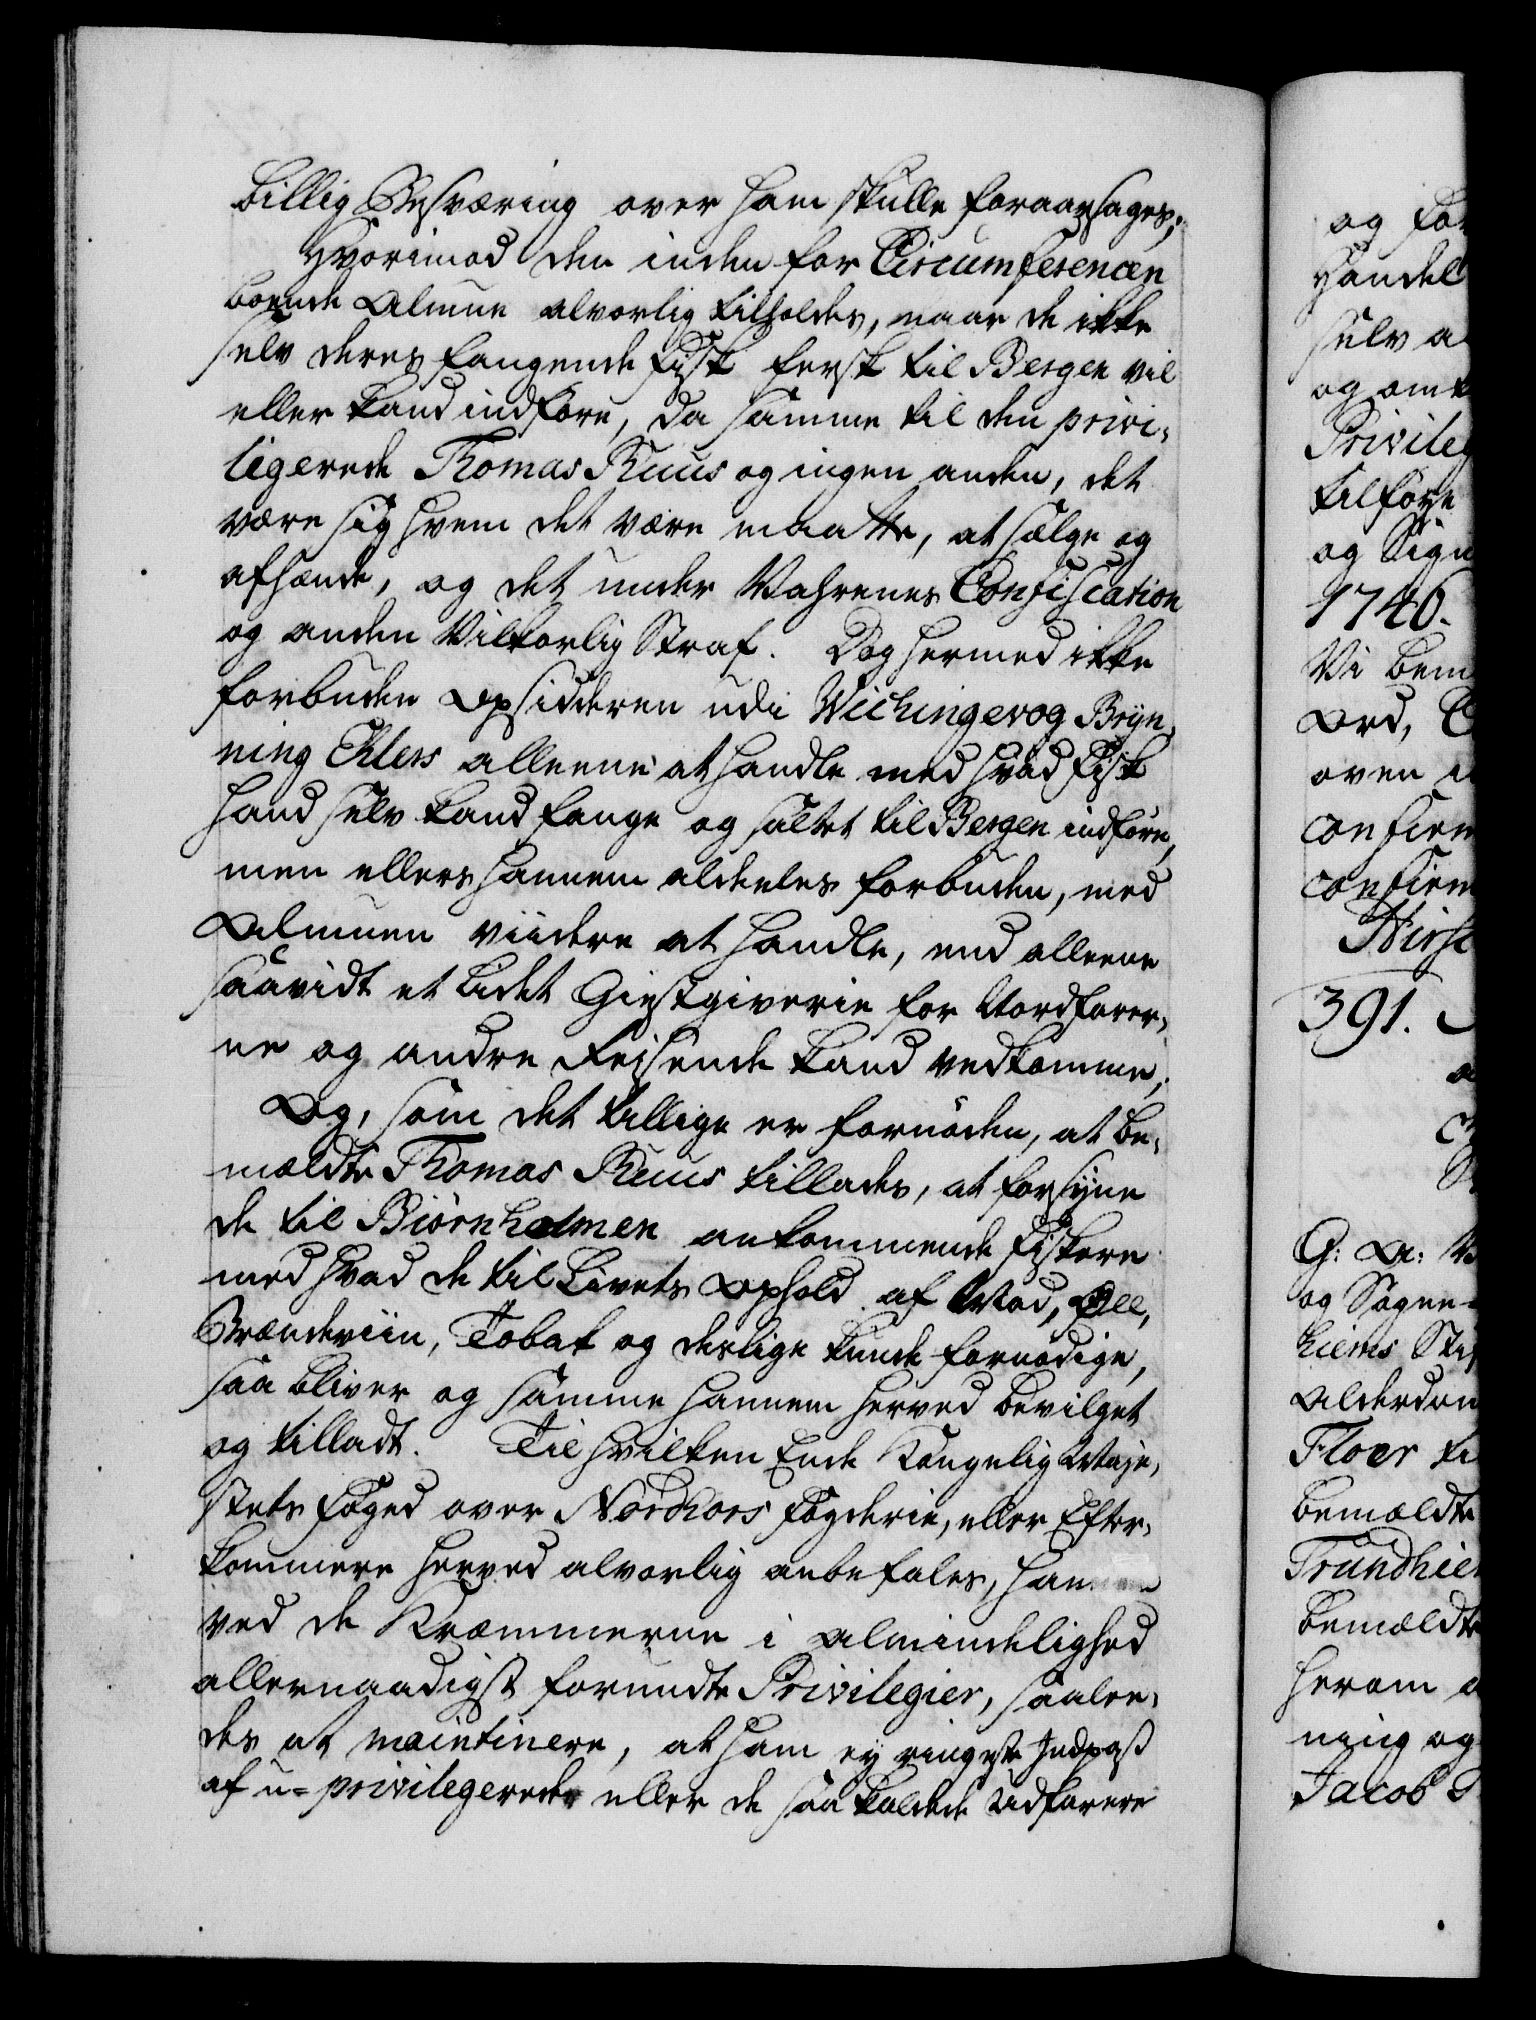 billig Besværing over ham skulle foraarsages;
Hvorimod den inden for Circumferencen
boende Almue alvorlig tilholdes, naar de ikke
selv deres fangende Fisk fersk til Bergen vil
eller kand indføre, da samme til den privi-
ligerede Thomas Ruus og ingen anden, det
være sig hvem det være maatte, at sælge og
afhænde, og det under Vahrenes Confiscation
og anden Vilkorlig Straf. Dog hermed ikke
forbuden Opsidderen udi Wichingevog Bryn-
ning Ehlers alleene at handle med hvad Fisk
hand selv kand fange og saltet til Bergen indføre,
men ellers hannem aldeeles forbuden, med
Almuen viidere at handle, end alleene
saavidt et Lidet Giestgiverie for Nordfarer-
ne og andre Reisende kand vedkomme;
Og, som det tillige er fornøden, at be-
mældte Thomas Ruus tillades, at forsyne
de til Biørnholmen ankommende Fiskere
med hvad de til Livets Ophold af Mad, Øll,
Brændeviin, Tobak og deslige kunde fornødige,
saa bliver og samme hannem herved bevilget
og tilladt. Til hvilken Ende Kongelig Maje-
stets Foged over Nordhors Fogderie, eller Efter-
kommere herved alvorlig anbefales, ham
ved de Kræmmerne i Almindelighed
allernaadigst forundte Privilegier, saalee-
des at maintinere, at ham ey ringeste Indpas
af u-privilegerede eller de saa kaldede Udfarere
og for
Handel
selv a
og omk
Privileg
tilføye
og Sign
1746.
Vi bem
Ord, C
oven i
confirm
confirm
Hirsc
391.
G: A: V
og Sogne-
hiems Stif
Alderdom
Floer ti
bemældte
Trundhiem
bemældte
herom a
ning og
Jacob